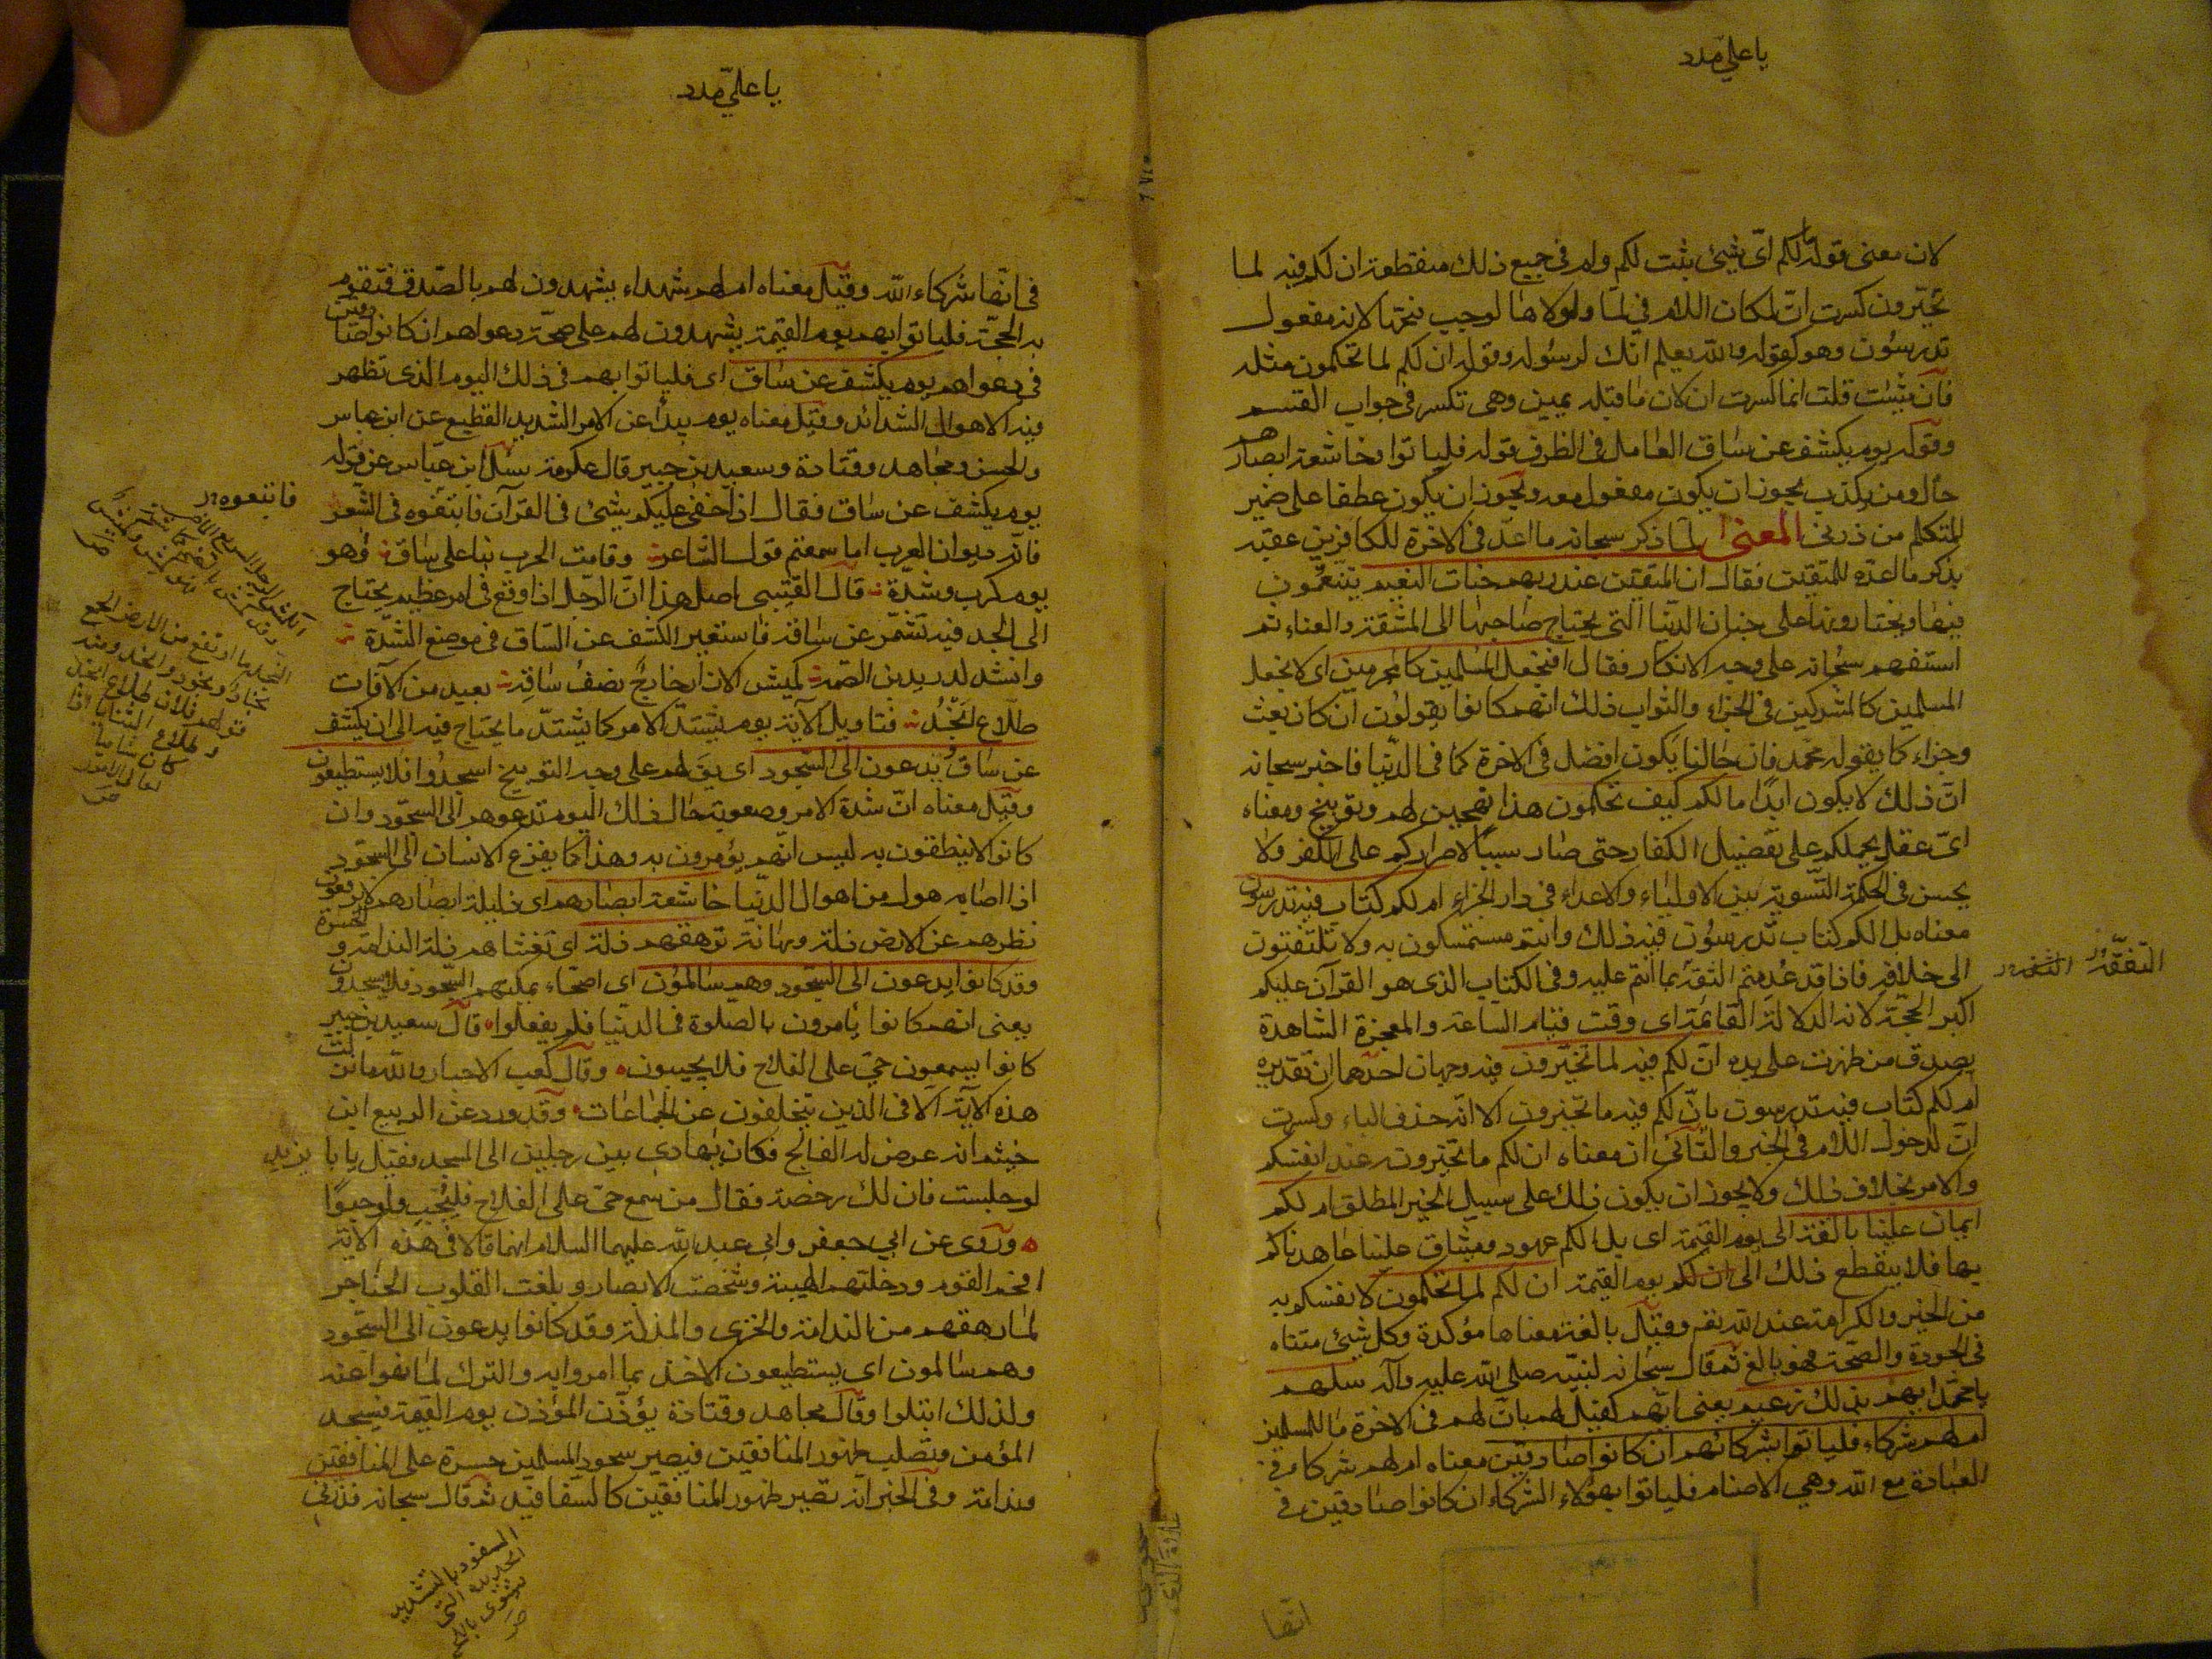 يا علي مدد
لان معنى قوله مالكم اىّ شيئ يثبت لكم وام فى جميع ذلك منقطعة ان لكم فيه لما
تخيّرون كسرت انّ لمكان اللام فى لما ولولاها لوجب فتحها لانه مفعول
تدرسون وهو كقوله والله يعلم انّك لرسوله وقوله ان لكم لما تحكمون مثله
فان شئت قلت انما كسرت ان لان ما قبله يمين وهى تكسر فى جواب القسم
وقوله يوم يكشف عن ساق العامل فى الظرف قوله فلياتوا وخاشعة ابصارهم
حال ومن يكذب يجوز ان يكون مفعول معه ويجوز ان يكون عطفا على ضمير
المتكلم من ذرنى المعنى لما ذكر سبحانه ما اعدّ فى الاخرة للكافرين عقبه
بذكر ما اعدّه للمتقين فقال ان المتقين عند ربهم جنات النعيم يتنعّمون
فيها ويختارونها على جنان الدنيا التى يحتاج صاحبها الى المشقة والعناء ثم
استفهم سبحانه على وجه الانكار فقال افنجعل المسلمين كالمجرمين اى لا نجعل
المسلمين كالمشركين فى الجزاء والثواب ذلك انهم كانوا يقولون ان كان بعث
وجزاء كما يقوله محمد فان حالنا يكون افضل فى الاخرة كما فى الدنيا فاخبر سبحانه
انّ ذلك لا يكون ابدا مالكم كيف تحكمون هذا تهجين لهم وتوبيخ ومعناه
اىّ عقل يحملكم على تفضيل الكفار حتى صار سببا لاصراركم على الكفر ولا
يحسن فى الحكمة التسوية بين الاولياء والاعداء فى دار الجزاء ام لكم كتاب فيه تدرسون
معناه بل الكم كتاب تدرسون فيه ذلك وانتم مستمسكون به ولا تلتفتون
الى خلافه فاذا قد عدمتم الثقة بما انتم عليه وفى الكتاب الذى هو القرآن عليكم
اكبر الحجّة لانه الدلالة القائمة اى وقت قيام الساعة والمعجزة الشاهدة
بصدق من ظهرت على يده انّ لكم فيه لما تخيّرون فيه وجهان احدهما ان تقديره
ام لكم كتاب فيه تدرسون بانّ لكم فيه ما تخيّرون الا انّه حذف الباء وكسرت
انّ لدخول اللام فى الخبر والثّانى ان معناه ان لكم ما تخيّرونه عند انفسكم
والامر بخلاف ذلك ولا يجوز ان يكون ذلك على سبيل الخبر المطلق ام لكم
ايمان علينا بالغة الى يوم القيمة اى بل لكم عهود ومیثاق علينا عاهدناكم
بها فلا ينقطع ذلك الى يوم القيمة ان لكم لما تحكمون لانفسكم به
من الخير والكرامة عند الله تعه وقيل بالغة معناها مؤكدة وكل شيئ متناه
فى الجودة والصّحة فهو بالغ ثم قال سبحانه لنبيّه صلى الله عليه وآله سلهم
يا محمد ايهم بذلك زعيم يعنى ايّهم كفيل لهم بانّ لهم فى الاخرة ما للمسلمين
ام لهم شركاء فلياتوا بشركائهم ان كانوا صادقين معناه ام لهم شركاء فى
العبادة مع الله وهى الاصنام فلياتوا بهؤلاء الشركاء ان كانوا صادقين فى
يا علي مدد
فى انّها شركاء الله وقيل معناه ام لهم شهداء يشهدون لهم بالصّدق فتقوم
به الحجّة فلياتوا بهم يوم القيمة يشهدون لهم على صحّة دعواهم ان كانوا صادقين
فى دعواهم يوم يكشف عن ساق اى فلياتوا بهم فى ذلك اليوم الذى تظهر
فيه الاهوال الشدائد وقيل معناه يوم يبدأ عن الامر الشديد الفظيع عن ابن عباس
والحسن ومجاهد وقتادة وسعيد بن جبير قال عكرمة سئل ابن عباس عن قوله
يوم يكشف عن ساق فقال اذا خفى عليكم شيئ فى القرآن فابتغوه فى الشّعر
فانّه ديوان العرب اما سمعتم قول الشّاعر وقامت الحرب بنا على ساق فهو
يوم كرب وشدّة قال القتيبى اصل هذا انّ الرّجل اذا وقع فى امر عظيم يحتاج
الى الجد فيه تشمّر عن ساقه فاستعير الكشف عن السّاق فى موضع الشدّة
وانشد لدريد بن الصّمة كميش الازار خارج نصف ساقه بعيد من الآفات
طلّاع انجد فتاويل الآية يوم يشتدّ الامر كما يشتدّ ما يحتاج فيه الى ان يكشف
عن ساق ويدعون الى السّجود اى يق لهم على وجه التوبيخ اسجدوا فلا يستطيعون
وقيل معناه انّ شدة الامر وصعوبة حال ذلك اليوم تدعوهم الى السجود وان
كانوا لا ينطقون به ليس انّهم يؤمرون به وهذا كما يفزع الانسان الى السجود
اذا اصابه هول من اهوال الدّنيا خاشعة ابصارهم اى ذليلة ابصارهم لا يرفعون
نظرهم عن الارض ذلة ومهانة ترهقهم ذلة اى تغشاهم ذلة الندامة والحسرة
وقد كانوا يدعون الى السّجود وهم سالمون اى اصحّاء يمكنهم السّجود فلا يسجدون
يعنى انهم كانوا يأمرون بالصلوة فى الدنيا فلم يفعلوا قال سعيد بن جبير
كانوا يسمعون حىّ على الفلاح فلا يجيبون وقال كعب الاحبار والله ما نزلت
هذه الآية الّا فى الذين يتخلفون عن الجماعات وقد ورد عن الربيع ابن
خيثم انه عرض له الفالج فكان يهادى بين رجلين الى المسجد فقيل يا با يزيد
لو جلست فان لك رخصة فقال من سمع حىّ على الفلاح فليجب ولو حبوًا
وروى عن ابى جعفر وابى عبد الله عليهما السلام انهما قالا فى هذه الآية
افحم القوم ودخلتهم الهيبة وشخصت الابصار وبلغت القلوب الحناجر
لما رهقهم من الندامة والخزى والمذلة وقد كانوا يدعون الى السّجود
وهم سالمون اى يستطيعون الاخذ بما امروا به والترك لما نهوا عنه
ولذلك ابتلوا وقال مجاهد وقتادة يؤذّن المؤذن يوم القيمة فيسجد
المؤمن وتصلب ظهور المنافقين فيصير سجود المسلمين حسرة على المنافقين
وندامة وفى الخبر انّه تصير ظهور المنافقين كالسفافيد ثم قال سبحانه فذرنى
فابتغوه
السفود بالتشديد
الحديدة التى
يشوى بها